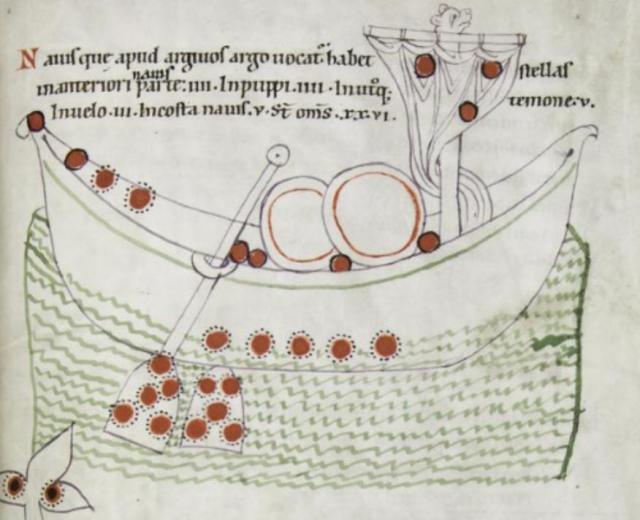 Nauis que apud argiuos argo uocat̃ habet stellas
in anteriori nauis parte· iiii · In puppi· iiii · In utq; temone· v.
In uelo· iii· In costa nauis. v· St̃ om̃s .xxvi.